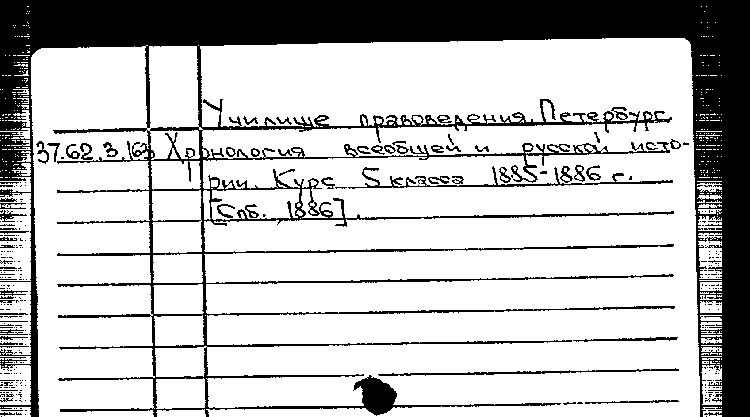 Училище правоведения. Петербург.
37.62.3.163 Хронология всеобщей и русской исто-
рии. Курс 5 класса 1885-1886 г.
[Спб. 1886].